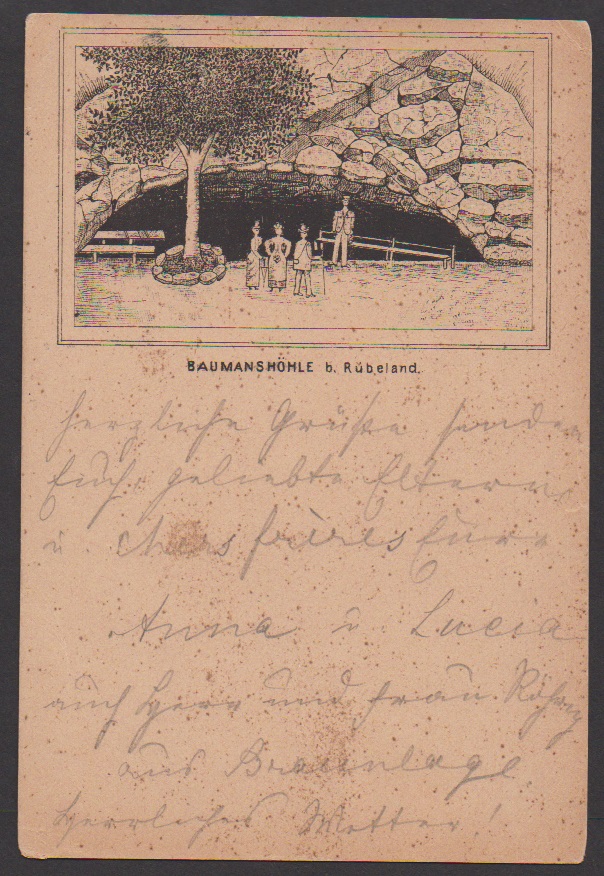 BAUMANSHÖHLE b. Rübeland.
herzliche Grüße senden
Euch, geliebte Eltern
u. chers frères Eure
Anna u. Lucia
auch Herr und Frau
aus Braunlage
Herrliches Wetter!